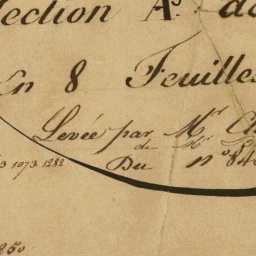 Section A.s de
En 8 Feuilles
Levée par Mr Ch
de Mr
3 1073 1282
Du n° 840
850